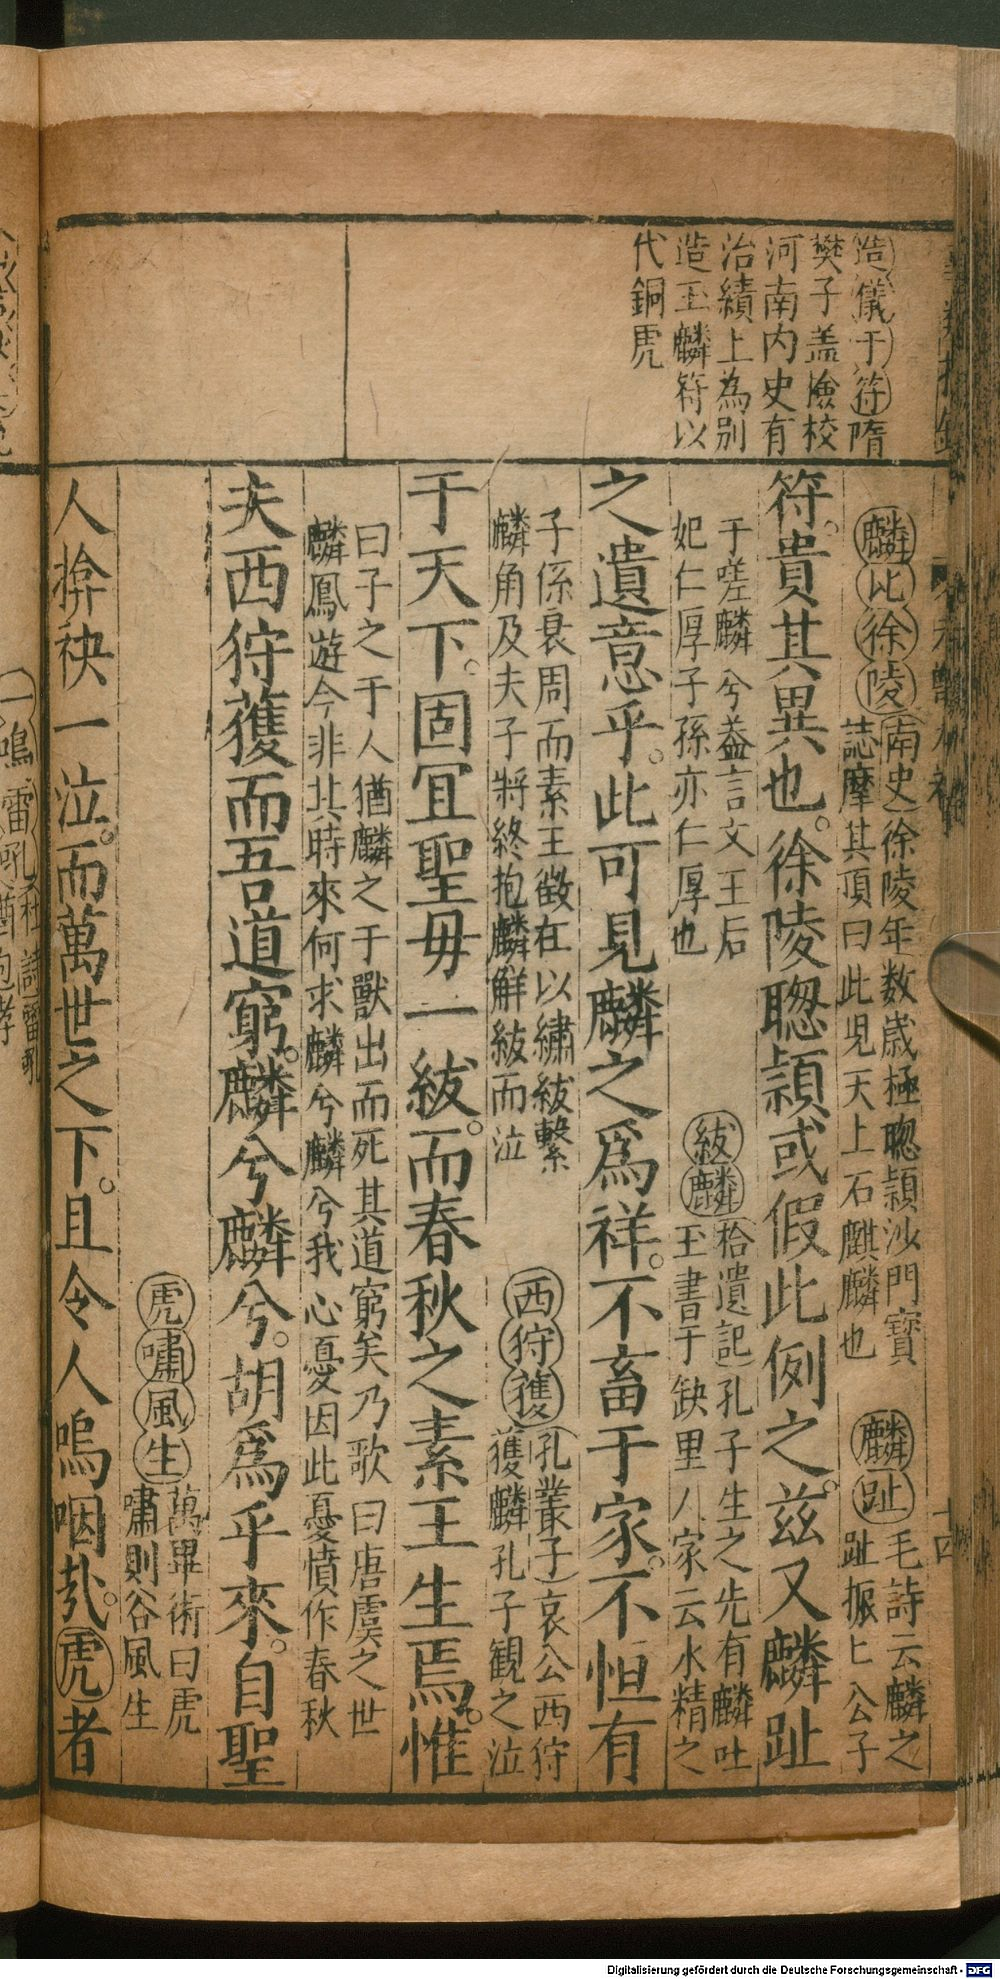 造儀于符隋
樊子盖撿校
河南内史有
治績上為别
造玉麟符以
代銅虎
麟比徐陵南史徐陵年数歳極聦頴沙門寳
誌摩其頂曰此児天上石麒麟也
麟趾毛詩云麟之
趾振〻公子
符。貴其異也。徐陵聦頴或假此例之。兹又麟趾
于嗟麟兮盖言文王后
妃仁厚子孫亦仁厚也
紱麟拾遺記孔子生之先有麟吐
玉書于缺里人家云水精之
之遺意乎。此可見麟之爲祥。不畜于家。不恒有
子係衰周而素王徴在以繡紱繫
麟角及夫子將終抱麟解紱而泣
西狩獲孔叢子哀公西狩
獲麟孔子観之泣
于天下。固宜聖毋一紱。而春秋之素王生焉。惟
曰子之于人猶麟之于獸出而死其道窮矣乃歌曰唐虞之世
麟鳳遊今非其時來何求麟兮麟兮我心憂因此憂憤作春秋
夫西狩獲而吾道窮。麟兮麟兮。胡爲乎來。自聖
虎嘯風生萬畢術曰虎
嘯則谷風生
人揜袂一泣。而萬世之下。且令人嗚咽㢤。虎者
Digitalisierung gefördert durch die Deutsche Forschungsgemeinschaft - DFG